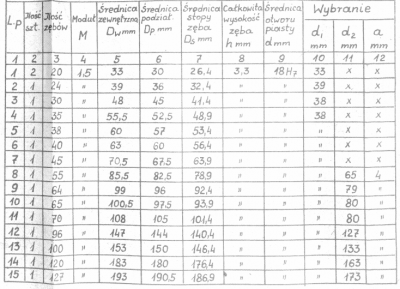 L.p Ilość szt. Ilość zębów Moduł M Średnica zewnętrzna Dw mm Średnica podział. Dp mm Średnica stopy zęba Ds mm Całkowita wysokość zęba h mm Średnica otworu piasty d mm Wybranie d1 mm d2 mm a mm
1 2 3 4 5 6 7 8 9 10 11 12
1 2 20 1,5 33 30 26,4 3,3 18H7 33 x x
2 1 24 " 39 36 32,4 " " 39 x x
3 1 30 " 48 45 41,4 " " 38 x x
4 1 35 " 55,5 52,5 48,9 " " 38 x x
5 1 38 " 60 57 53,4 " " " x x
6 1 40 " 63 60 56,4 " " " x x
7 1 45 " 70,5 67,5 63,9 " " " x x
8 1 55 " 85,5 82,5 78,9 " " " 65 4
9 1 64 " 99 96 92,4 " " " 79 "
10 1 65 " 100,5 97,5 93,9 " " " 80 "
11 1 70 " 108 105 101,4 " " " 80 "
12 1 96 " 147 144 140,4 " " " 127 "
13 1 100 " 153 150 146,4 " " " 133 "
14 1 120 " 183 180 176,4 " " " 163 "
15 1 127 " 193 190,5 186,9 " " " 173 "